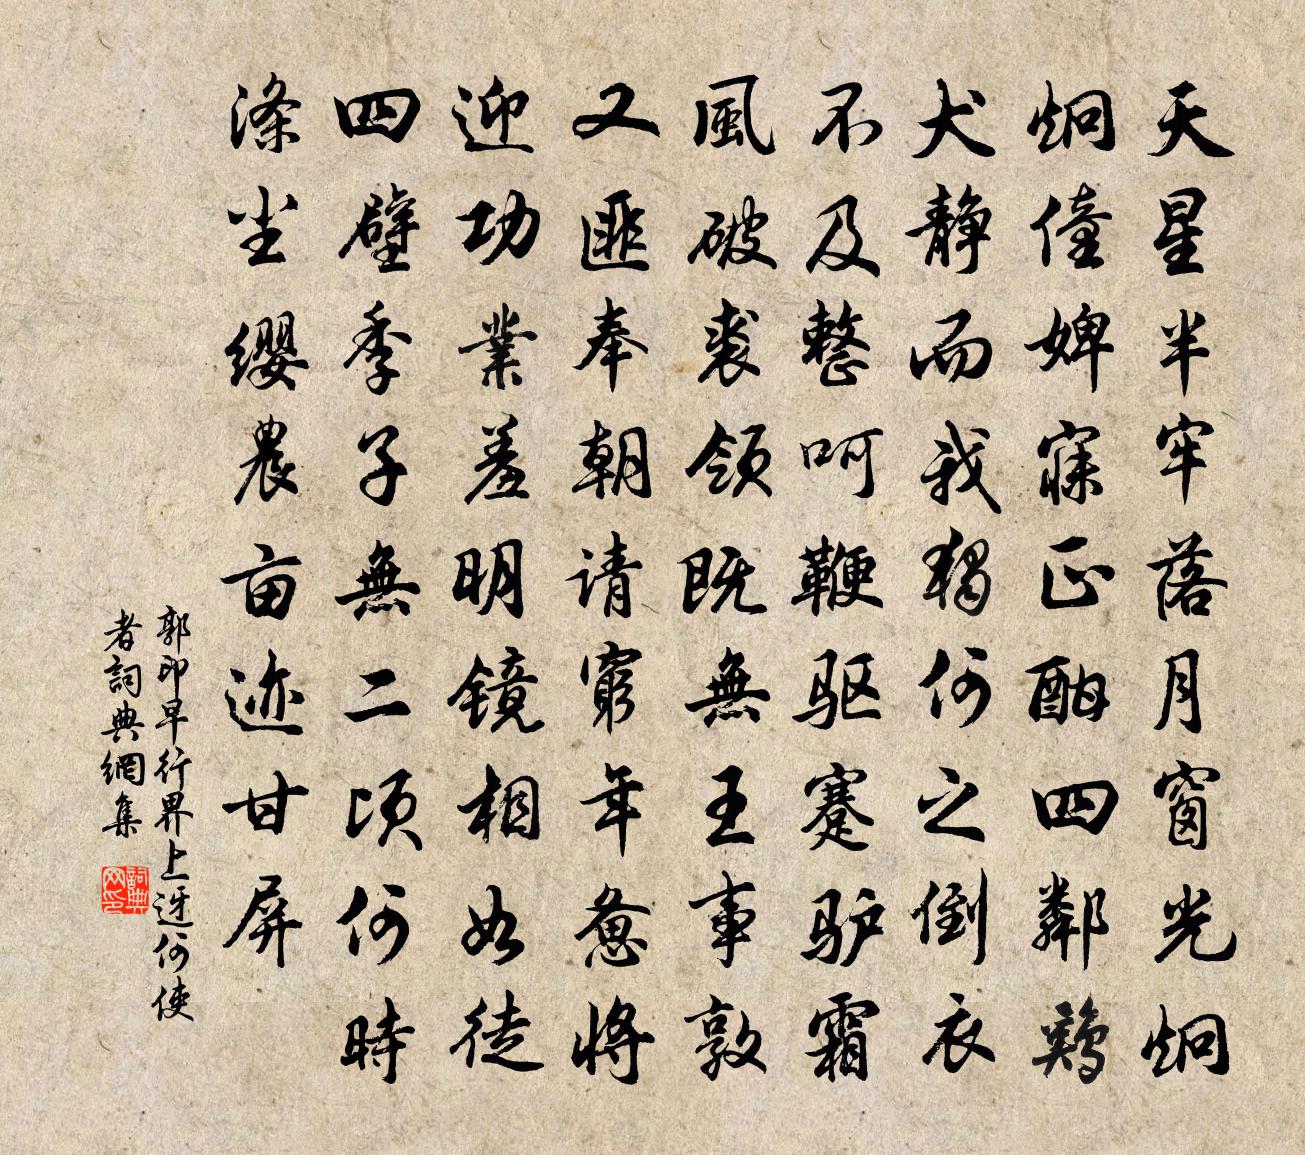 天星半牢落月窗光炯
炯僮婢寐正酣四鄰鷄
犬静而我独何之倒衣
不及整呵鞭驱蹇驴霜
風破裘领既無王事敦
又匪奉朝请窮年惫将
迎功業羞明镜相如徒
四壁季子無二顷何時
涤尘缨農亩迹甘屏
郭印早行界上迓何使
者詞典網集
詞典网印